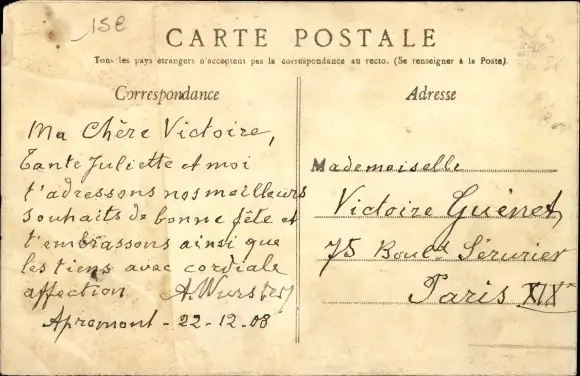 15€
CARTE POSTALE
Tous les pays étrangers n'acceptent pas la correspondance au recto. (Se renseigner à la Poste).
Correspondance
Ma Chère Victoire,
Tante Juliette et moi
t'adressons nos meilleurs
souhaits de bonne fête et
t'embrassons ainsi que
les tiens avec cordiale
affection
Apremont - 22-12-08
Adresse
Mademoiselle
Victoire Guénet,
75 Bould Sérurier
Paris XIXe